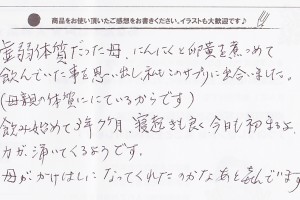 商品をお使い頂いたご感想をお書きください。イラストも大歓迎です♪
虚弱体質だった母、にんにくと卵黄を煮つめて
飲んでいた事を思い出し私もこのサプリに出会いました。
(母親の体質ににているからです)
飲み始めて3年ヶ月、寝起きも良く今日も初まるよ、
力が涌いてくるようです。
母がかけはしになってくれたのかなあと喜んでいます